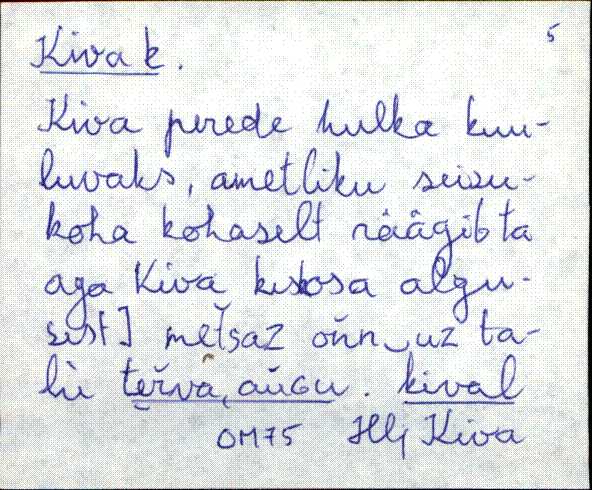 5
Kiva k.
Kiva perede hulka kuu-
luvaks, ametliku seisu-
koha kohaselt räägib ta
aga Kiva keskosa algu-
sest] metsaz oňn‿uz ta-
lù
OM75 Hlj Kiva